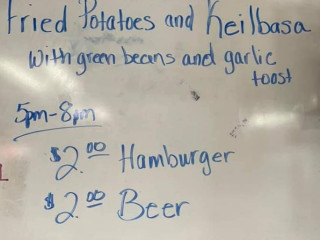 Fried Potatoes and Keilbasa
with green beans and garlic
toast
5pm-8pm
$2.00 Hamburger
$2.00 Beer